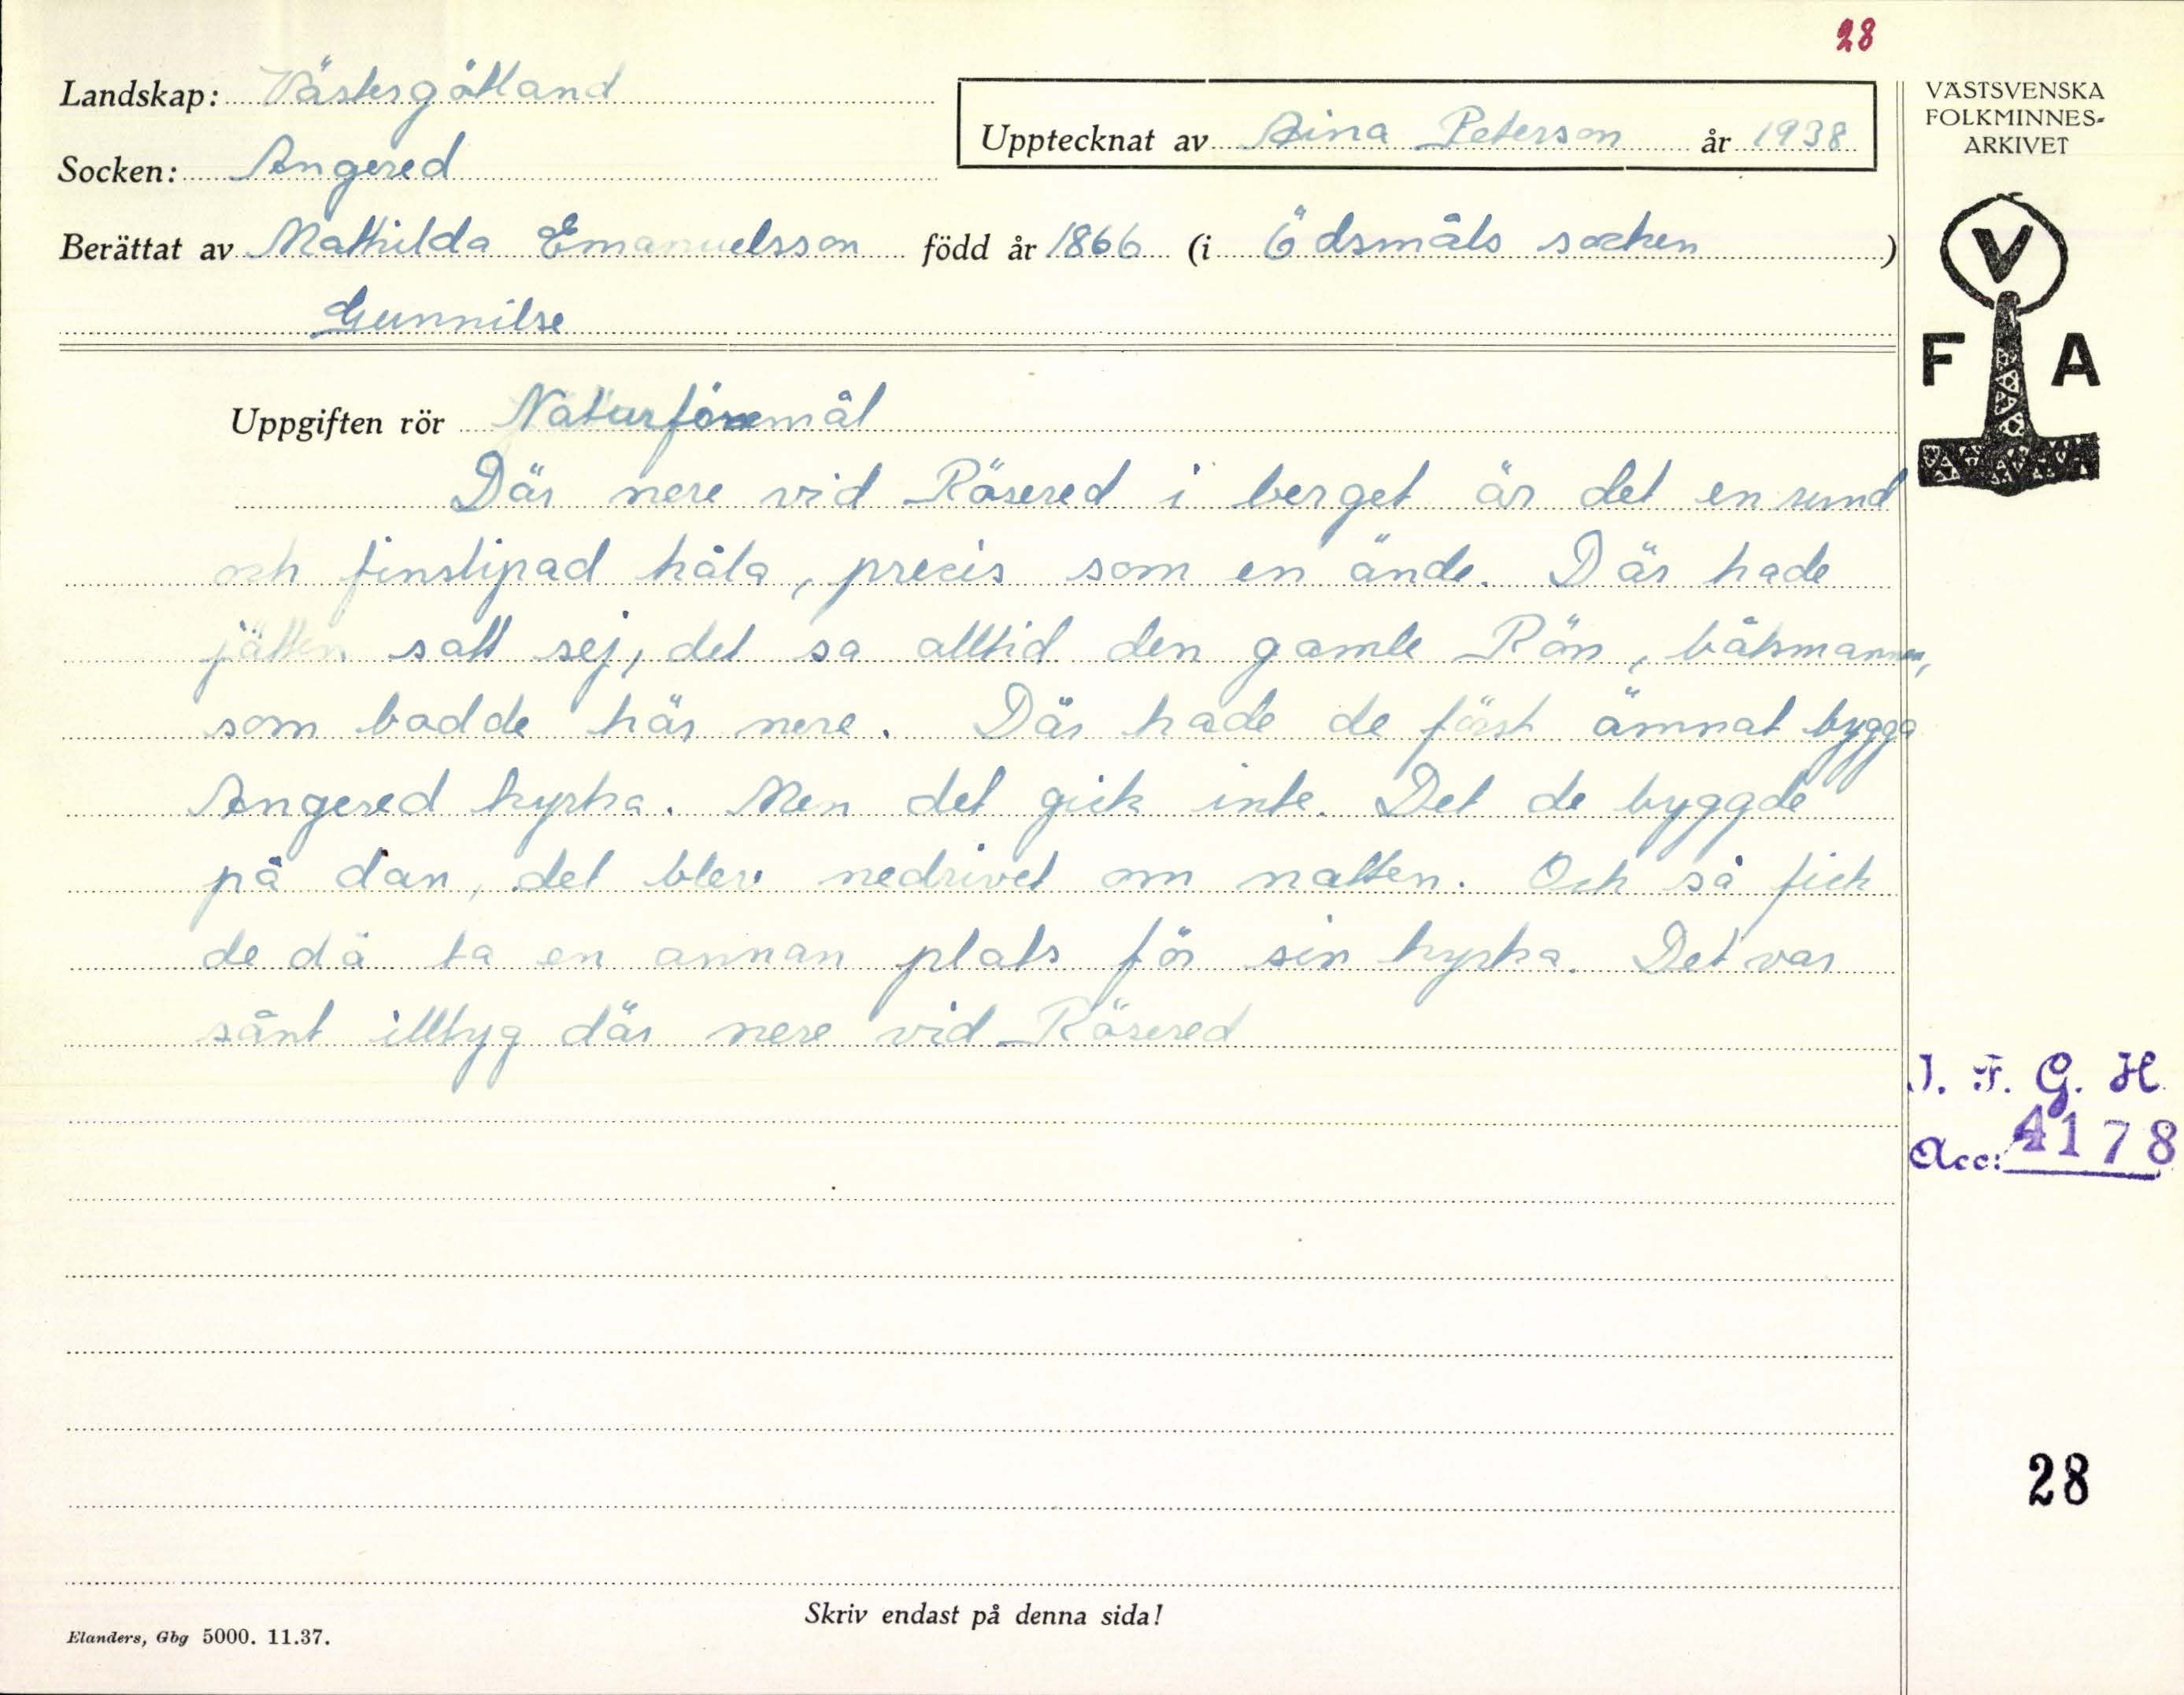 28
Landskap: Västergötland
Socken: Angered
Upptecknat av Aina Peterson år 1938
Berättat av Mathilda Emanuelsson född år 1866 (i Ödsmåls socken)
Gunnilse
VÄSTSVENSKA
FOLKMINNES-
ARKIVET
V
F A
Uppgiften rör Naturföremål
Där nere vid Rösered i berget är det en rund
och finslipad håla, precis som en ände. Där hade
jätten satt sej, det sa alltid den gamle Rön, båtsmannen,
som bodde här nere. Där hade de först ämnat bygga
Angered kyrka. Men det gick inte. Det de byggde
på dan, det blev nedrivet om natten. Och så fick
de då ta en annan plats för sin kyrka. Det var
sånt illtyg där nere vid Rösered
I. F. G. H.
Acc: 4178
28
Skriv endast på denna sida!
Elanders, Gbg 5000. 11.37.